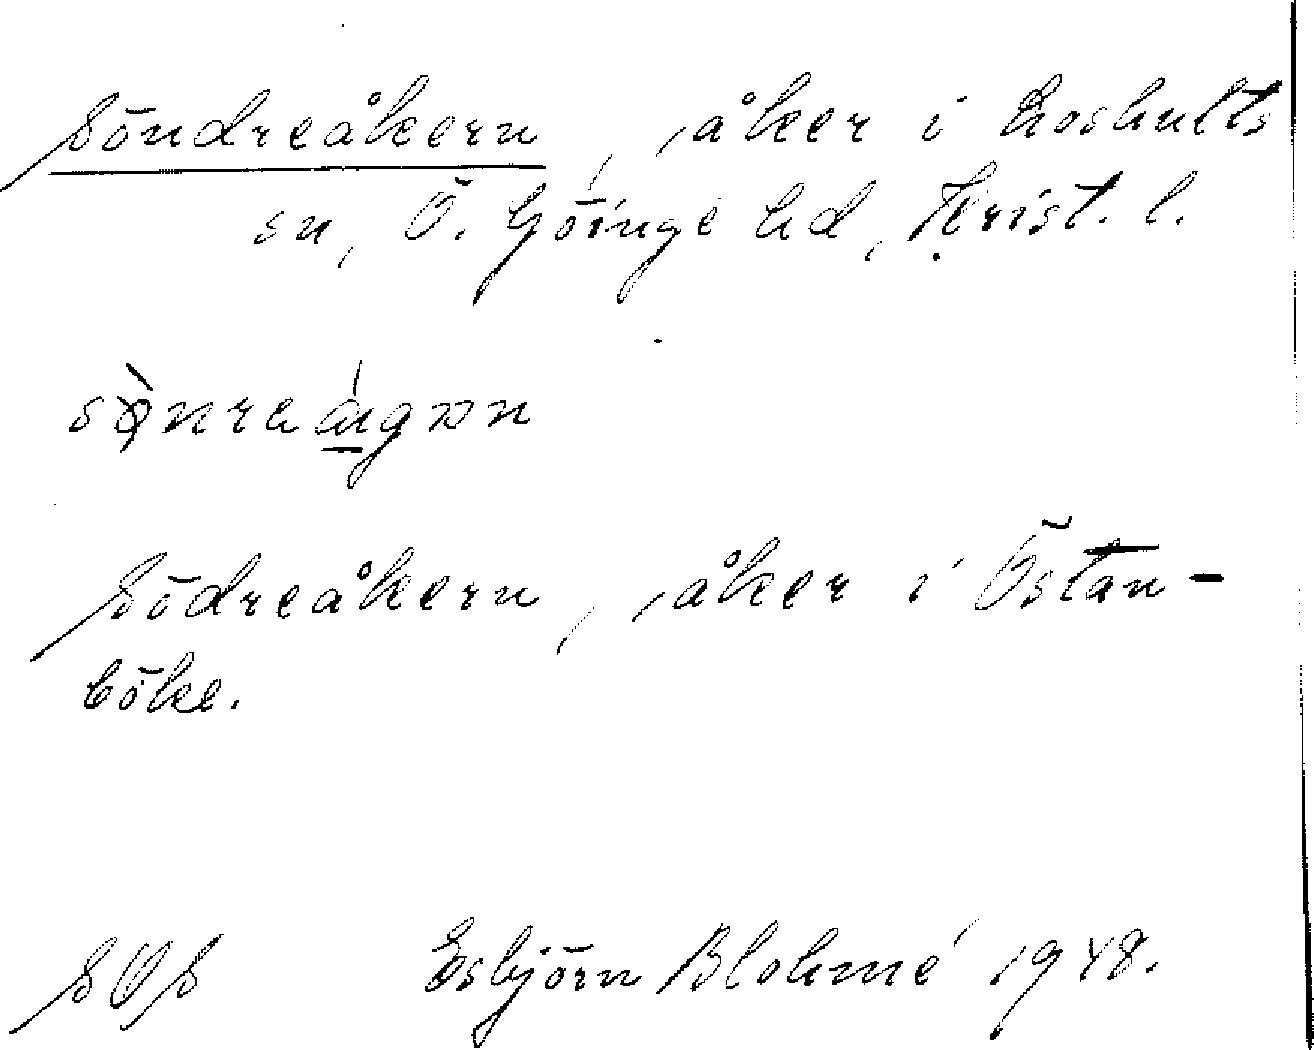 Söndreåkern, åker i Loshults
sn, Ö. Göinge hd, Krist. l.
Södreåkern, åker i Östan-
böke.
SOS Esbjörn Blohmé 1948.